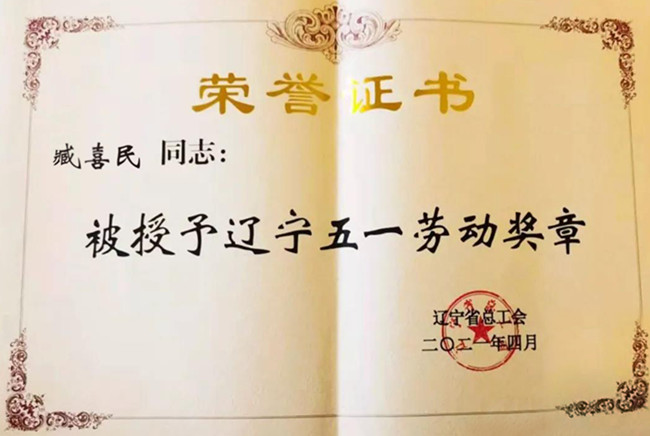 荣誉证书
臧喜民 同志：
被授予辽宁五一劳动奖章
辽宁省总工会
二〇二一年四月